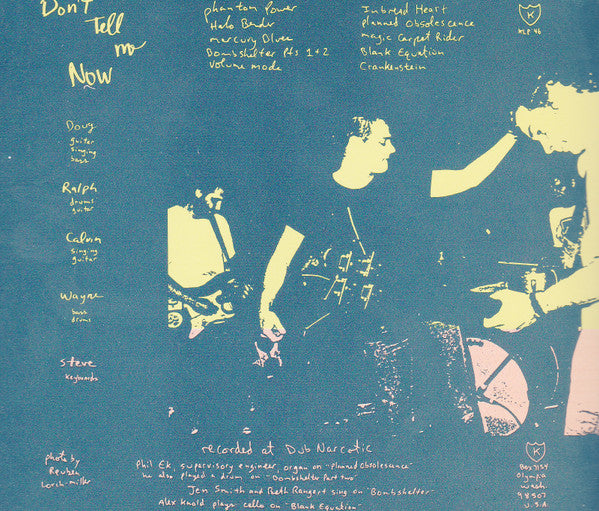 Don't
Tell
me
Now
phantom Power
Halo Bender
mercury Blues
Bombshelter Pts 1+2
Volume mode
Inbread Heart
planned Obsolescence
magic Carpet Rider
Blank Equation
Crankenstein
K
KLP 46
Doug
guitar
singing
bass
Ralph
drums
guitar
Calvin
singing
guitar
Wayne
bass
drums
Steve
keyboards
photo by
Reuben
Lorch-miller
recorded at Dub Narcotic
Phil Ek, supervisory engineer, organ on "Planned Obsolescence"
he also played a drum on "Bombshelter Part two"
Jen Smith and Beth Rangert sing on "Bombshelter"
Alex Knold plays cello on "Blank Equation"
K
Box 7154
Olympia
wash
98507
U.S.A